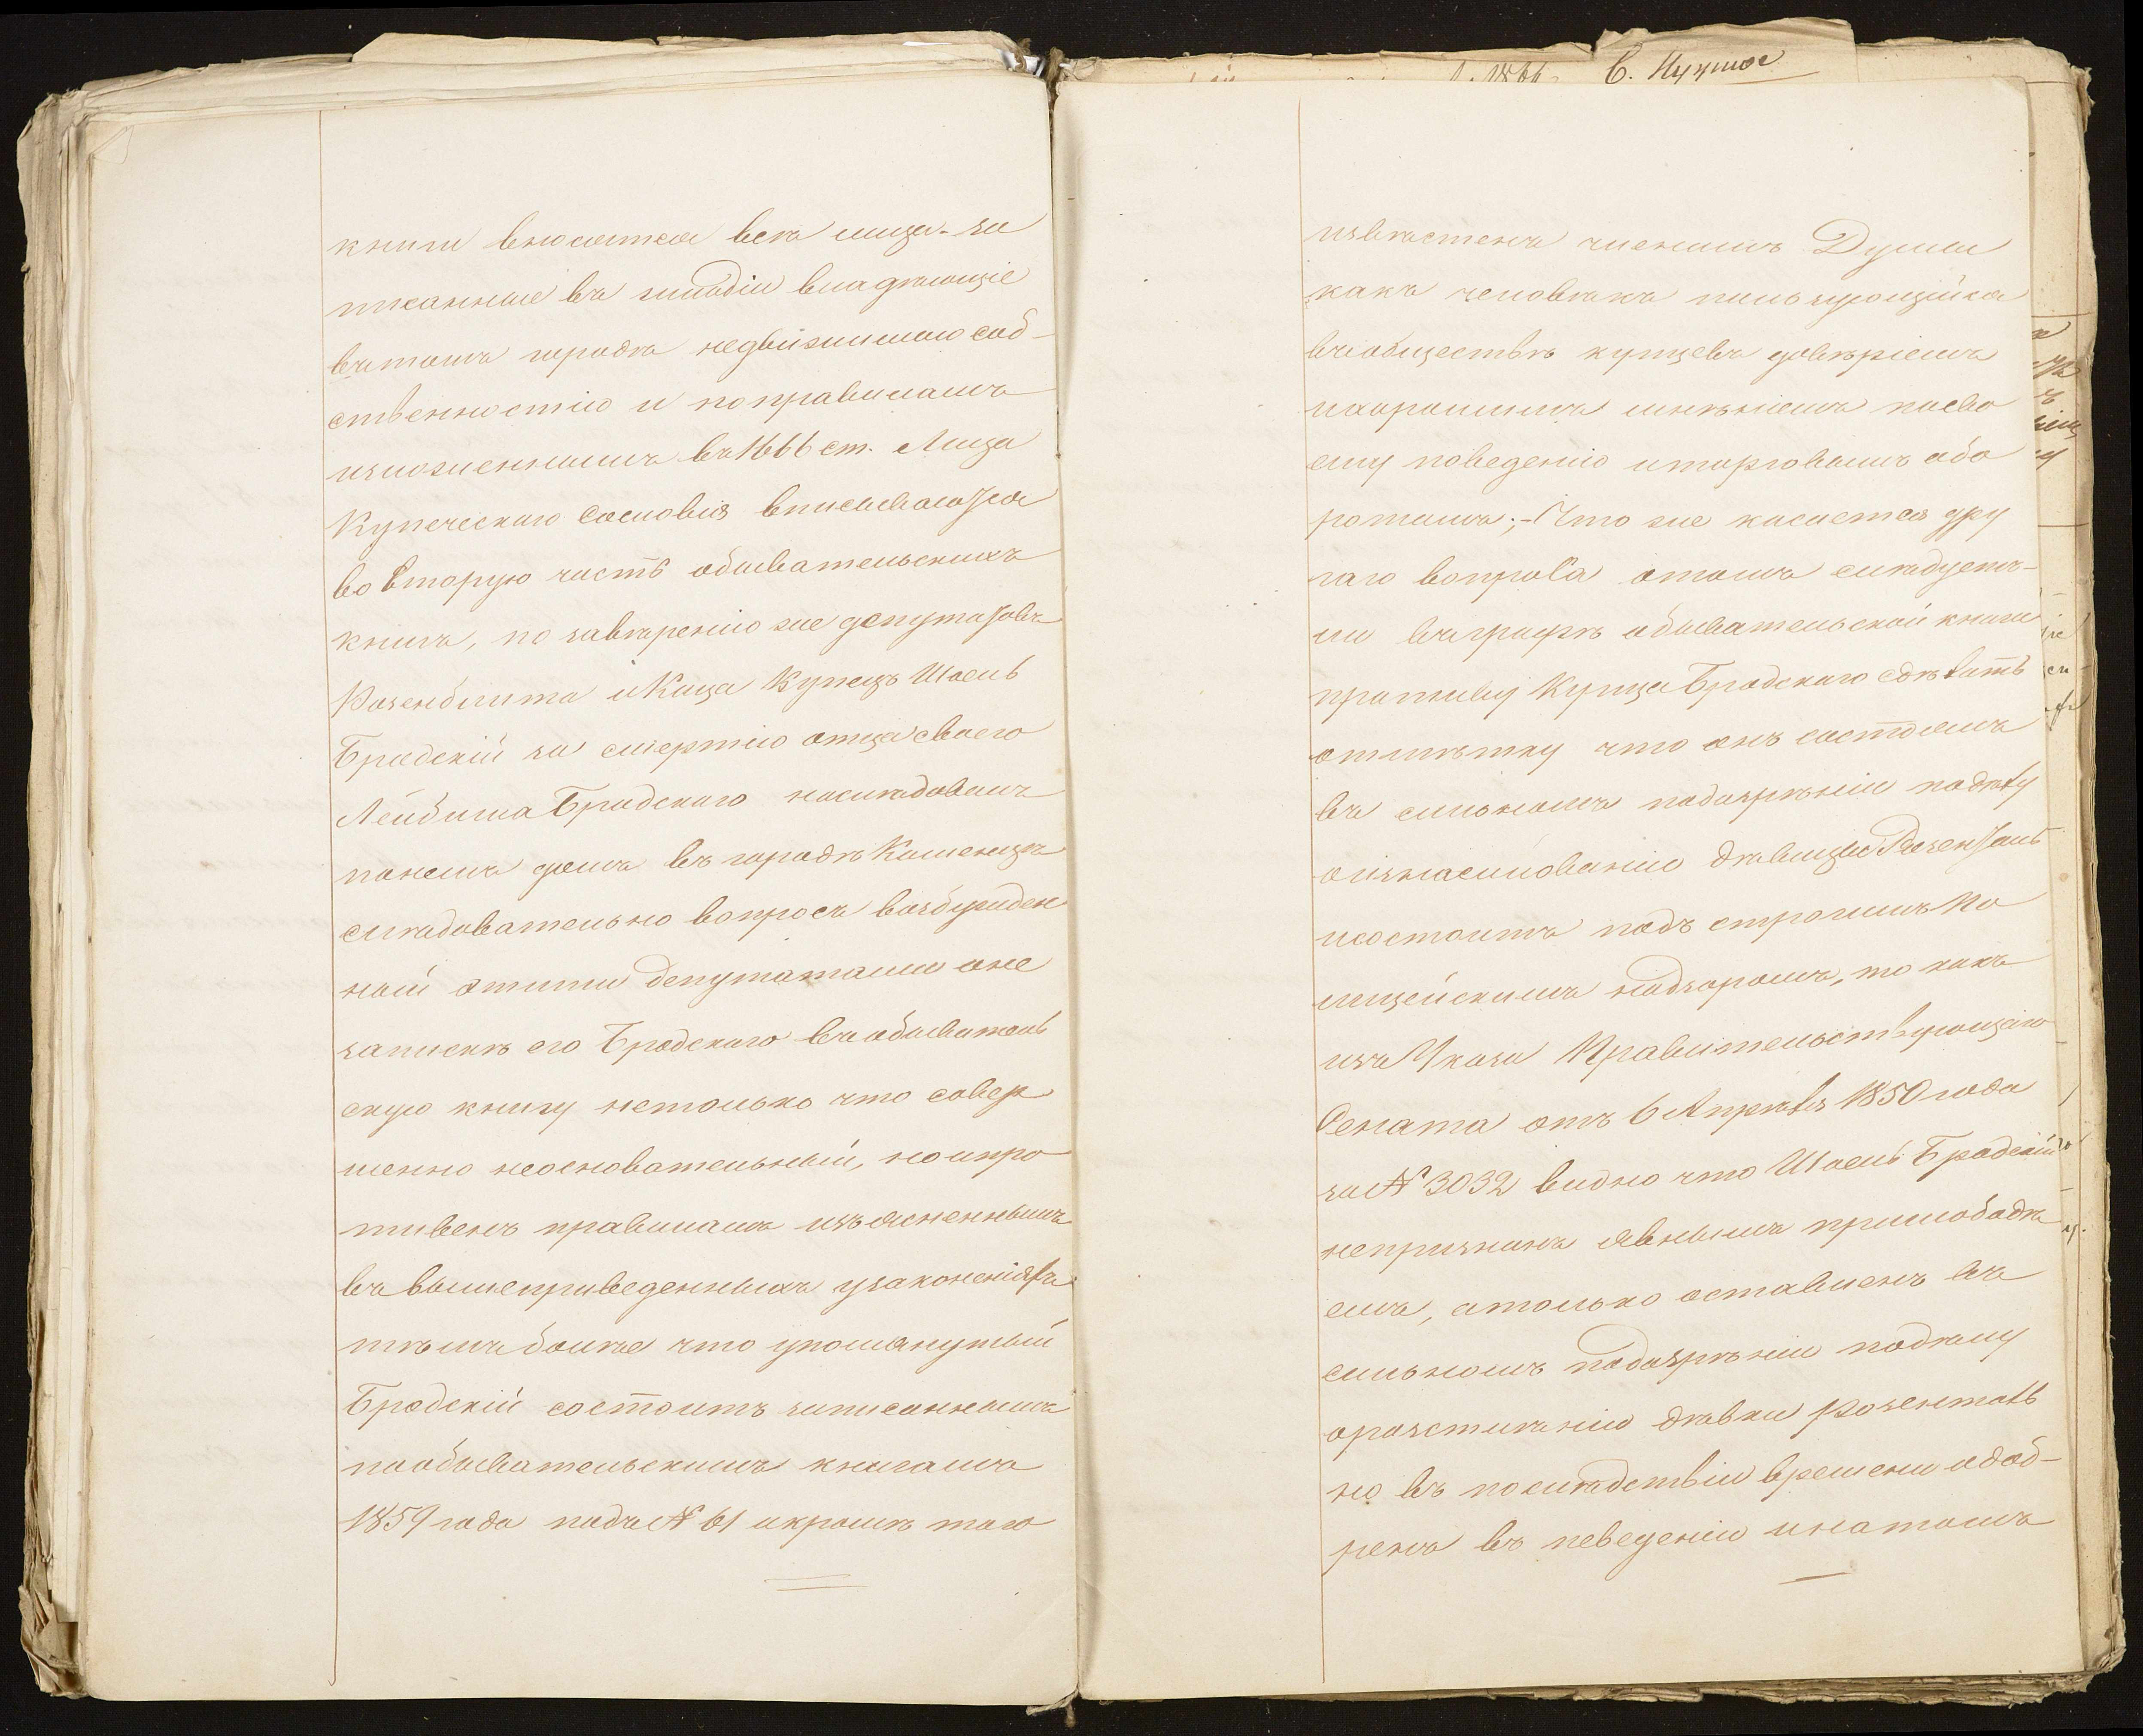 книги вносятся всѣ лица за
писанные въ гильдіи владѣющіе
въ томъ городѣ недвижимою соб-
ственностію и по правиламъ
изложеннымъ въ 1666 ст. Лица
Купеческаго Сословія вписываются
во вторую часть обывательскихъ
книгъ, по завѣренію же депутатовъ
Розенблита и Каца Купецъ Шаель
Бродскій за смертію отца своего
Лейбиша Бродскаго наслѣдовалъ
по немъ домъ въ городѣ Каменцѣ
слѣдовательно вопросъ возбужден
ной этими депутатами о не
запискѣ его Бродскаго въ обыватель
скую книгу не только что совер
шенно неосновательный, но и про
тивенъ правиламъ изъясненнымъ
въ вышеприведенныхъ узаконеніяхъ
тѣмъ болѣе что упомянутый
Бродскій состоитъ записаннымъ
по обывательскимъ книгамъ
1859 года подъ № 61 и кромѣ того
С. Нучное
извѣстенъ членамъ Думы
какъ человѣкъ пользующійся
въ обществѣ купцевъ довѣріемъ
и хорошимъ мнѣніемъ по сво
ему поведенію и торговымъ обо
ротамъ;- Что же касается дру
гаго вопроса о томъ слѣдуетъ-
ли въ графѣ обывательской книги
противу Купца Бродскаго сдѣлать
отмѣтку что онъ состоялъ
въ сильномъ подозрѣніи по дѣлу
о изнасилованію дѣвицы Розенталь
и состоитъ подъ строгимъ по
лицейскимъ надзоромъ, то какъ
изъ Указа Правительствующаго
Сената отъ 6 Апрѣля 1850 года
за № 3032 видно что Шаель Бродскій
не признанъ явнымъ прелюбодѣ
емъ, а только оставленъ въ
сильномъ подозрѣніи по дѣлу
о растлѣнію дѣвки Розенталь
но въ послѣдствіи времени одоб-
ренъ въ поведеніи и на томъ